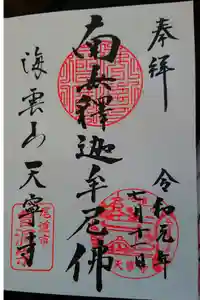 奉拝
令和元年
七月十一日
南無釋迦牟尼佛
海雲山天寧寺
尾道市